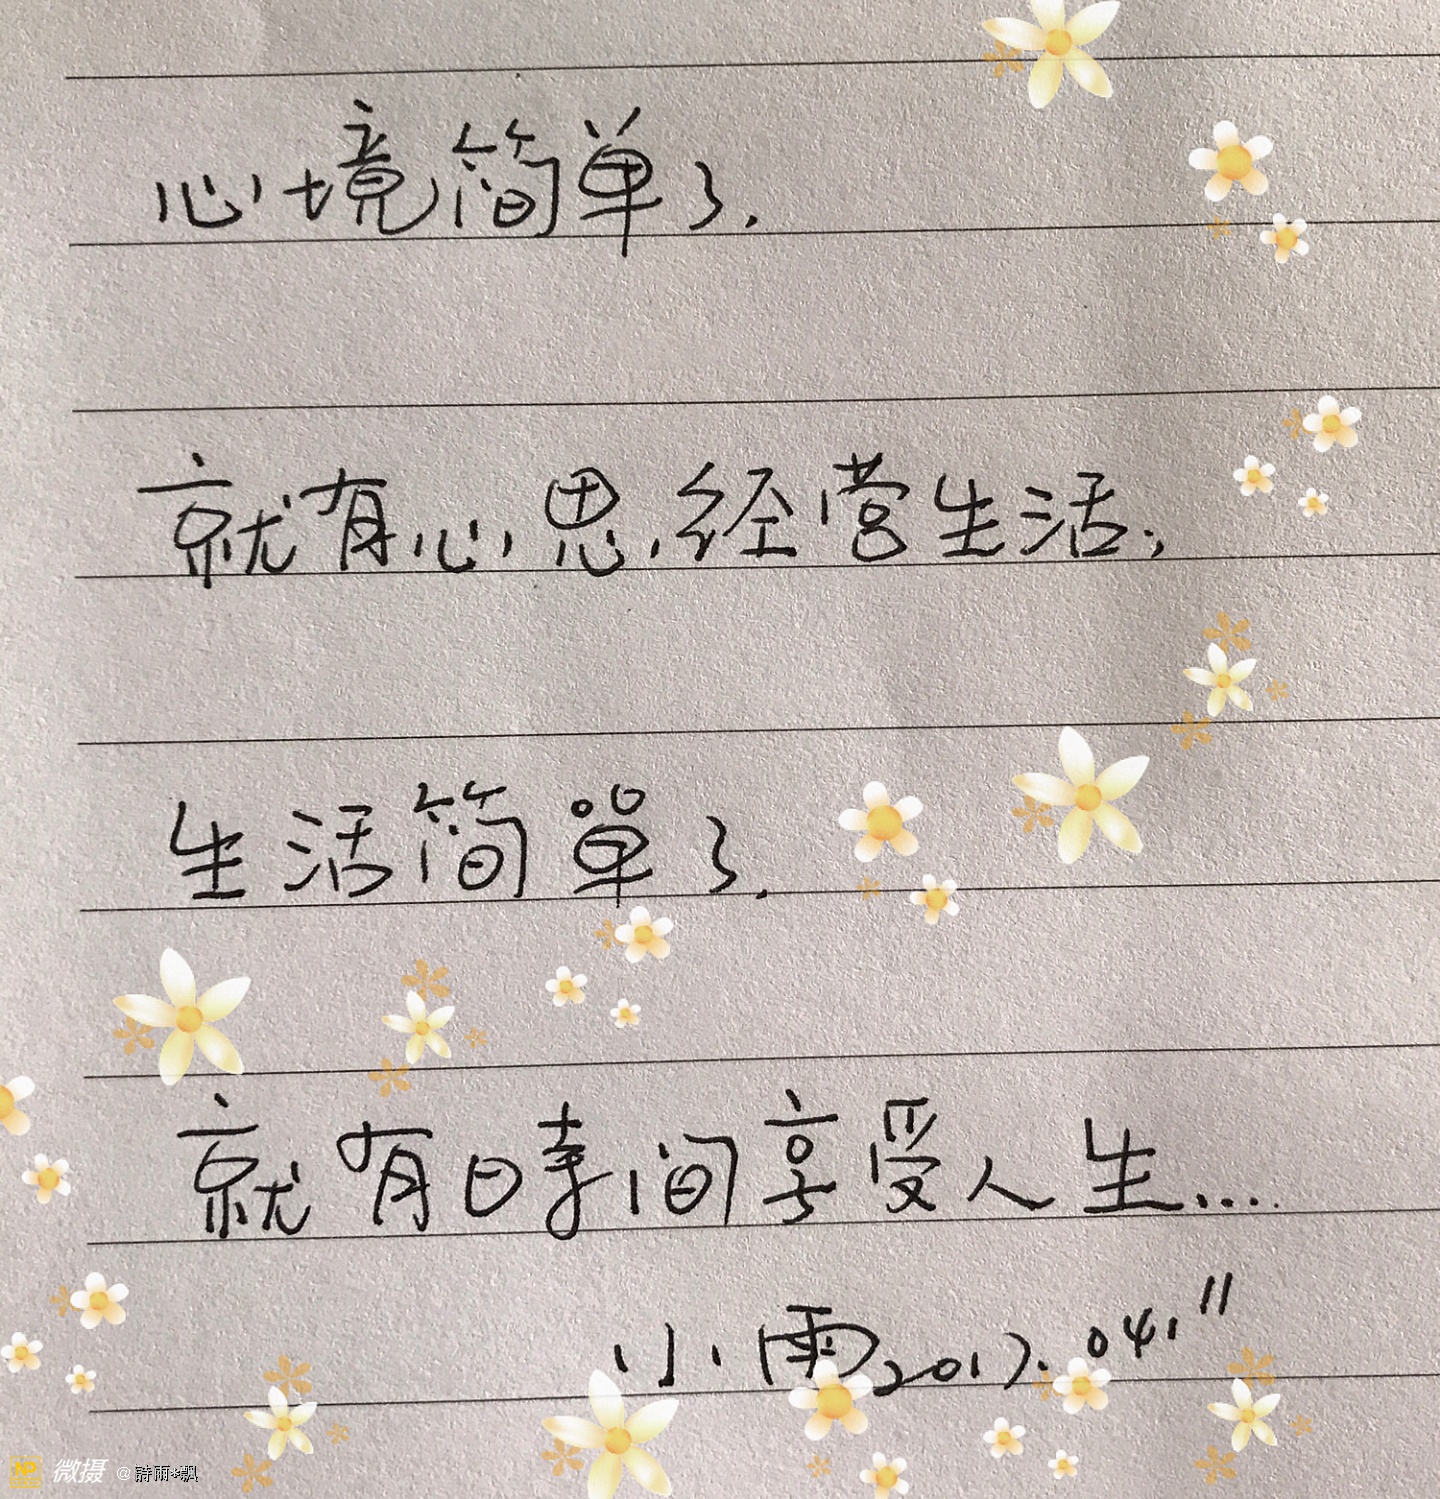 心境简单了，
就有心思经营生活；
生活简单了，
就有时间享受人生....
小雨2017.04.11
微摄 @詩雨*飘